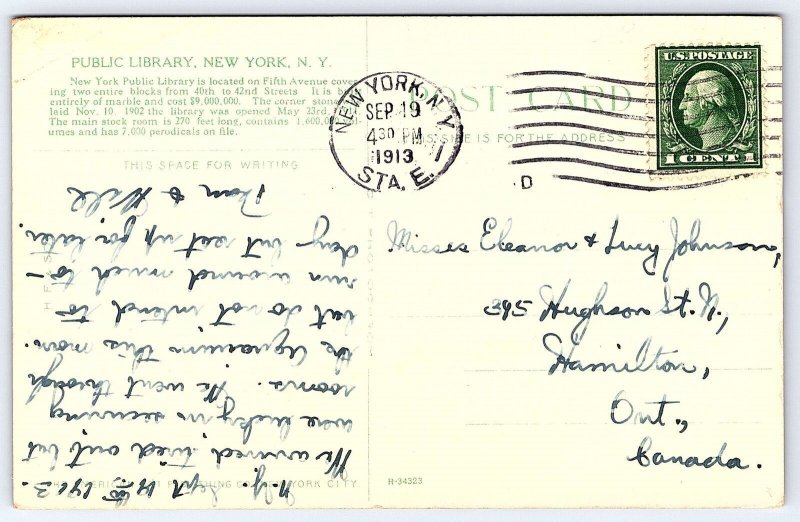 PUBLIC LIBRARY, NEW YORK, N. Y.
New York Public Library is located on Fifth Avenue cover-
ing two entire blocks from 40th to 42nd Streets It is
entirely of marble and cost $9,000,000. The corner stone
laid Nov. 10. 1902 the library was opened May 23rd
The main stock room is 270 feet long, contains 1,600,0
umes and has 7,000 perodicals on file.
THIS SPACE FOR WRITING
POST CARD
THIS SIDE IS FOR THE ADDRESS
NEW YORK, N.Y.
SEP 19
4 30 PM
1913
STA. E.
1
D
U.S. POSTAGE
1 CENT 1
Misses Eleanor & Lucy Johnson,
395 Hughson St. N.,
Hamilton,
Ont.,
Canada.
N.Y. Sept 19th 1913.
We arrived tired out but
were lucky in securing
rooms. We went through
the Aquarium this morn.
but do not intend to
run around much to-
day but rest up for later.
& Will
H-34323